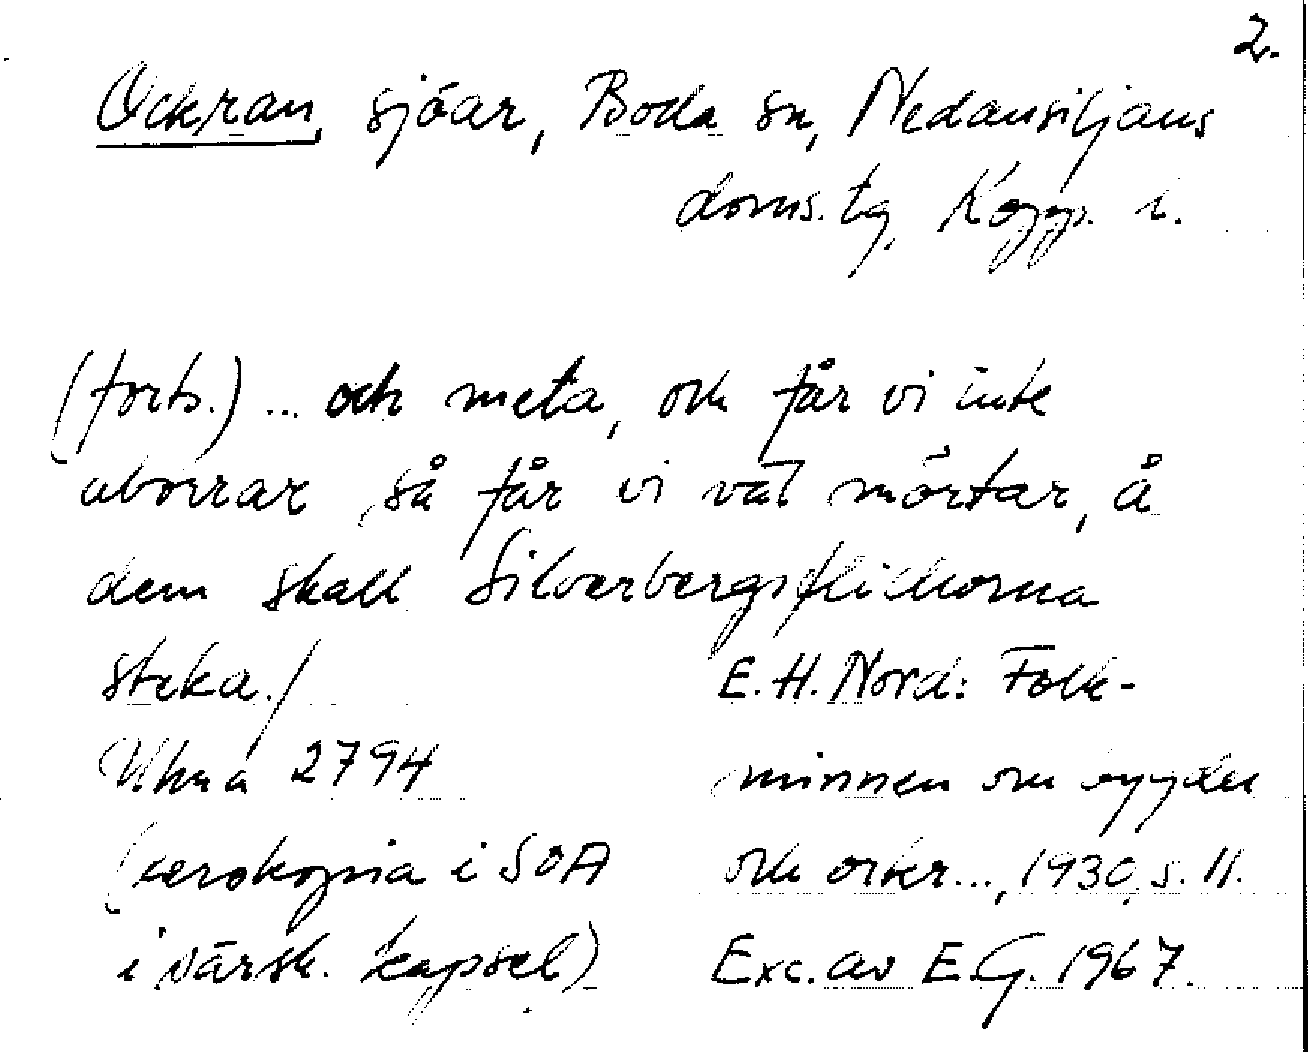 2.
Ockran, sjöar, Boda sn, Nedansiljans
doms.tg, Kopp. l.
(forts.) ... och meta, och får vi inte
aborrar så får vi väl mörtar, å
dem skall Silverbergsflickorna
steka./
E.H. Nord: Folk-
Ulma 2794
minnen om bygder
(xerokopia i SOA
och orter..., 1930, s. 11.
i särsk. kapsel)
Exc. av E.G. 1967.